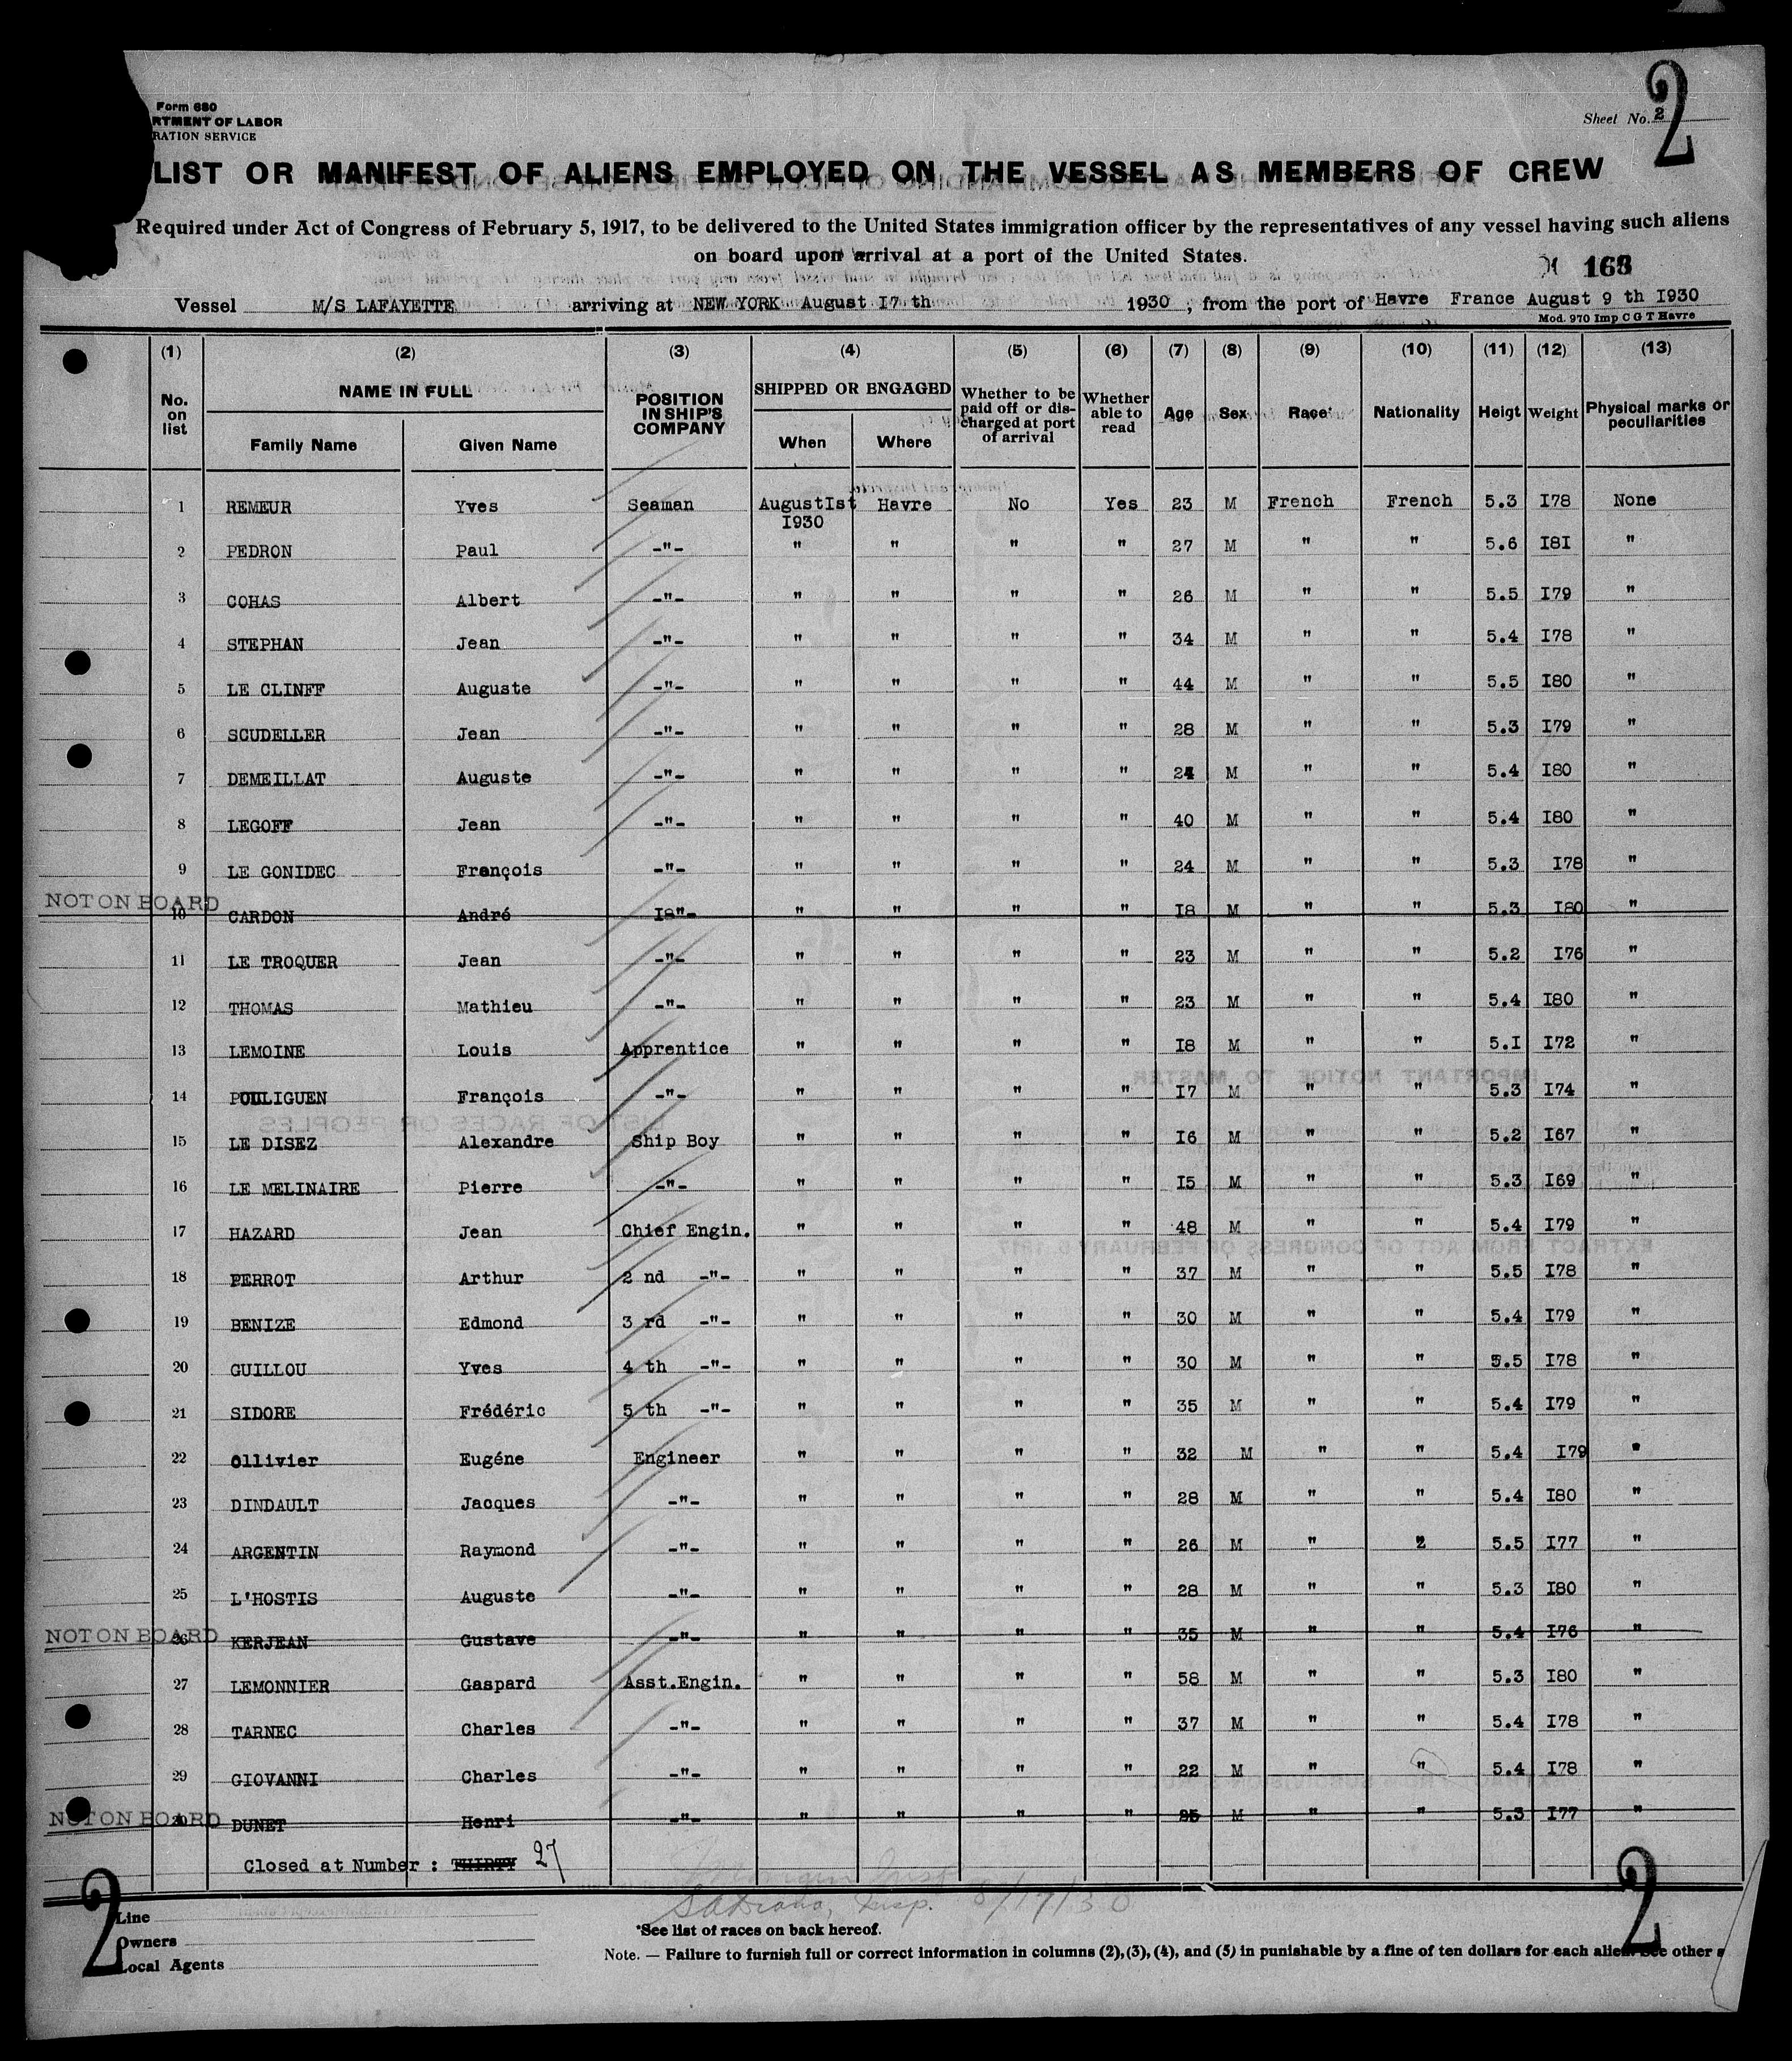 Form 680
RTMENT OF LABOR
RATION SERVICE
Sheet No. 2
2
LIST OR MANIFEST OF ALIENS EMPLOYED ON THE VESSEL AS MEMBERS OF CREW
Required under Act of Congress of February 5, 1917, to be delivered to the United States immigration officer by the representatives of any vessel having such aliens
on board upon arrival at a port of the United States.
168
Vessel M/S LAFAYETTE arriving at NEW YORK August I7 th 1930 ; from the port of Havre France August 9 th I930
Mod. 970 Imp C G T Havre
(1) (2) (3) (4) (5) (6) (7) (8) (9) (10) (11) (12) (13)
No. on list NAME IN FULL Family Name Given Name POSITION IN SHIP'S COMPANY SHIPPED OR ENGAGED When Where Whether to be paid off or dis-charged at port of arrival Whether able to read Age Sex Race Nationality Heigt Weight Physical marks or peculiarities
1 REMEUR Yves Seaman AugustIst I930 Havre No Yes 23 M French French 5.3 I78 None
2 PEDRON Paul -"- " " " " 27 M " " 5.6 I8I "
3 COHAS Albert -"- " " " " 26 M " " 5.5 I79 "
4 STEPHAN Jean -"- " " " " 34 M " " 5.4 I78 "
5 LE CLINFF Auguste -"- " " " " 44 M " " 5.5 I80 "
6 SCUDELLER Jean -"- " " " " 28 M " " 5.3 I79 "
7 DEMEILLAT Auguste -"- " " " " 24 M " " 5.4 I80 "
8 LEGOFF Jean -"- " " " " 40 M " " 5.4 I80 "
9 LE GONIDEC François -"- " " " " 24 M " " 5.3 I78 "
NOT ON BOARD
10 CARDON André I8"- " " " " I8 M " " 5.3 I80 "
11 LE TROQUER Jean -"- " " " " 23 M " " 5.2 I76 "
12 THOMAS Mathieu -"- " " " " 23 M " " 5.4 I80 "
13 LEMOINE Louis Apprentice " " " " I8 M " " 5.I I72 "
14 POULIGUEN François -"- " " " " I7 M " " 5.3 I74 "
15 LE DISEZ Alexandre Ship Boy " " " " I6 M " " 5.2 I67 "
16 LE MELINAIRE Pierre -"- " " " " I5 M " " 5.3 I69 "
17 HAZARD Jean Chief Engin. " " " " 48 M " " 5.4 I79 "
18 PERROT Arthur 2 nd -"- " " " " 37 M " " 5.5 I78 "
19 BENIZE Edmond 3 rd -"- " " " " 30 M " " 5.4 I79 "
20 GUILLOU Yves 4 th -"- " " " " 30 M " " 5.5 I78 "
21 SIDORE Frédéric 5 th -"- " " " " 35 M " " 5.4 I79 "
22 Ollivier Eugéne Engineer " " " " 32 M " " 5.4 I79 "
23 DINDAULT Jacques -"- " " " " 28 M " " 5.4 I80 "
24 ARGENTIN Raymond -"- " " " " 26 M " 2 5.5 I77 "
25 L'HOSTIS Auguste -"- " " " " 28 M " " 5.3 I80 "
NOT ON BOARD
26 KERJEAN Gustave -"- " " " " 35 M " " 5.4 I76 "
27 LEMONNIER Gaspard Asst.Engin. " " " " 58 M " " 5.3 I80 "
28 TARNEC Charles -"- " " " " 37 M " " 5.4 I78 "
29 GIOVANNI Charles -"- " " " " 22 M " " 5.4 I78 "
NOT ON BOARD
30 DUNET Henri -"- " " " " 25 M " " 5.3 I77 "
Closed at Number : THIRTY 27
Insp. 8/17/30
2 2
Line
Owners
Local Agents
*See list of races on back hereof.
Note. — Failure to furnish full or correct information in columns (2),(3),(4), and (5) in punishable by a fine of ten dollars for each alien. See other